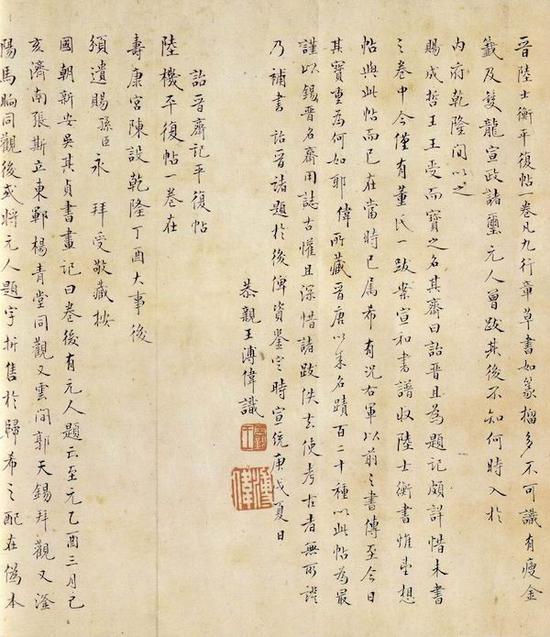 晉陸士衡平復帖一卷凡九行章草書如篆籀多不可識有瘦金
籤及雙龍宣政諸璽元人曾跋其後不知何時入於
內府乾隆間以之
賜成哲王王受而寶之名其齋曰詒晉且為題記頗詳惜未書
之卷中今僅有董氏一跋案宣和書譜收陸士衡書惟望想
帖與此帖而已在當時已屬希有況右軍以前之書傳至今日
其寶重為何如耶偉所藏晉唐以來名蹟百二十種以此帖為最
謹以錫晉名齋用誌古懽且深惜諸跋佚去使考古者無所證
乃補書詒晉諸題於後俾資鑒定時宣統庚戌夏日
恭親王溥偉識
溥偉
詒晉齋記平復帖
陸機平復帖一卷在
壽康宮陳設乾隆丁酉大事後
頒遺賜孫臣永 拜受敬藏按
國朝新安吳其貞書畫記曰卷後有元人題云至元乙酉三月己
亥濟南張斯立東鄆楊青堂同觀又雲間郭天錫拜觀又滏
陽馬昫同觀後或將元人題字折售於歸希之配在偽本